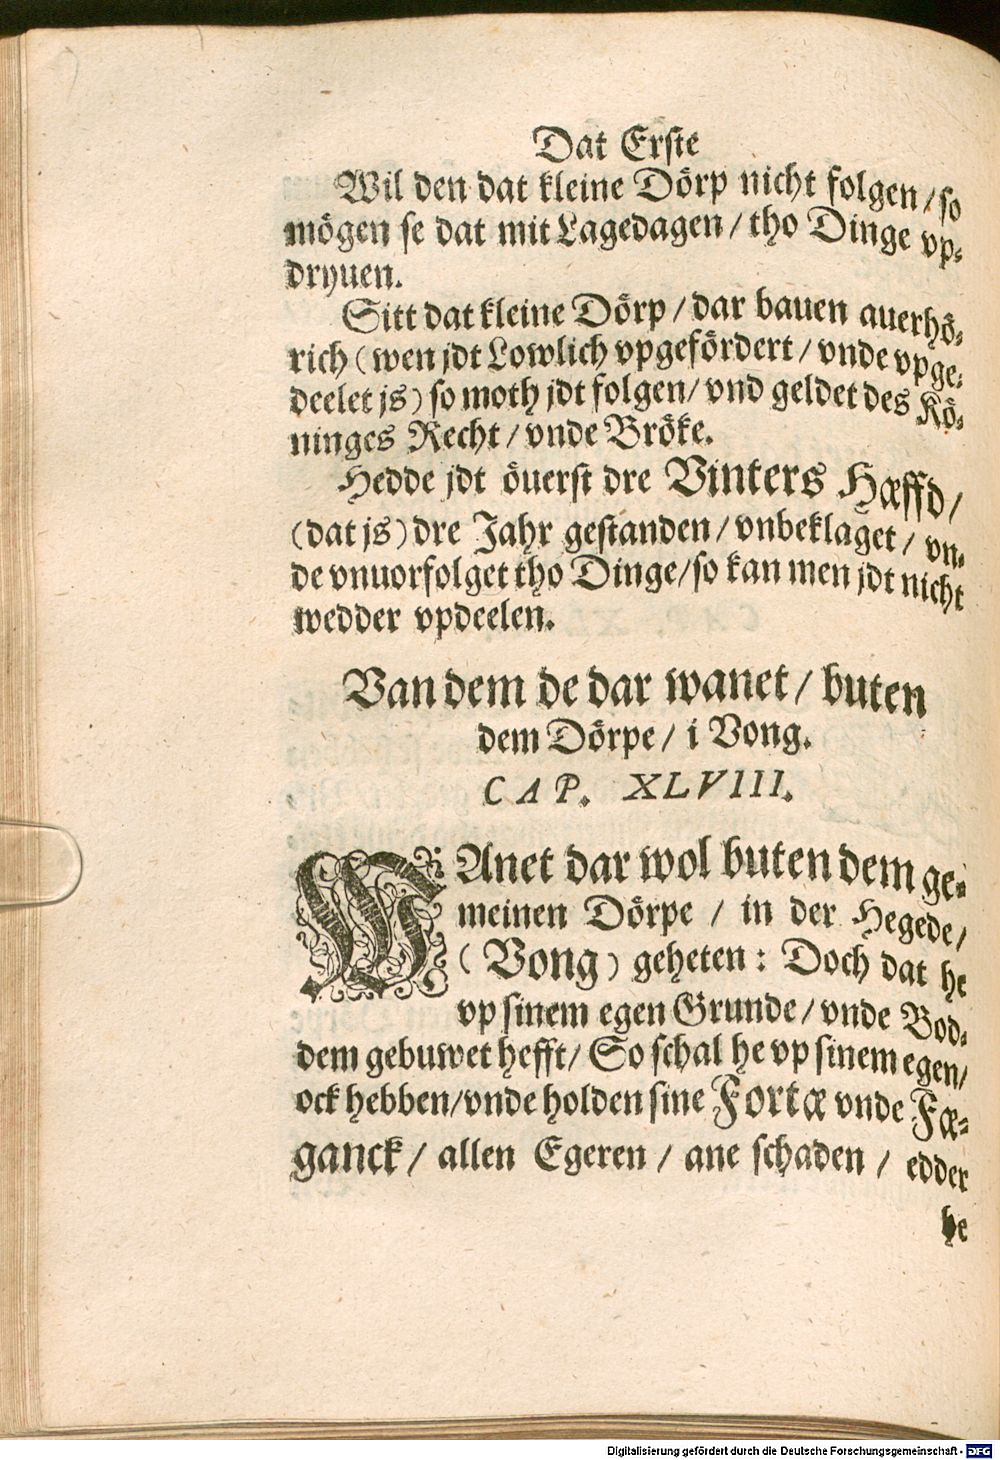 Dat Erste
Wil den dat kleine Dörp nicht folgen / so
mögen se dat mit Lagedagen / tho Dinge vp⸗
dryuen.
Sitt dat kleine Dörp / dar bauen auerhö⸗
rich (wen jdt Lowlich vpgefördert / vnde vpge⸗
deelet js) so moth jdt folgen / vnd geldet des Kö⸗
ninges Recht / vnde Bröke.
Hedde jdt öuerst dre Vinters Hæffd /
(dat js) dre Jahr gestanden / vnbeklaget / vn⸗
de vnuorfolget tho Dinge / so kan men jdt nicht
wedder vpdeelen.
Van dem de dar wanet / buten
dem Dörpe / i Vong.
CAP. XLVIII.
WAnet dar wol buten dem ge⸗
meinen Dörpe / in der Hegede /
(Vong) geheten : Doch dat he
vp sinem egen Grunde / vnde Bod⸗
dem gebuwet hefft / So schal he vp sinem egen /
ock hebben / vnde holden sine Fortæ vnde Fæ⸗
ganck / allen Egeren / ane schaden / edder
he
Digitalisierung gefördert durch die Deutsche Forschungsgemeinschaft - DFG